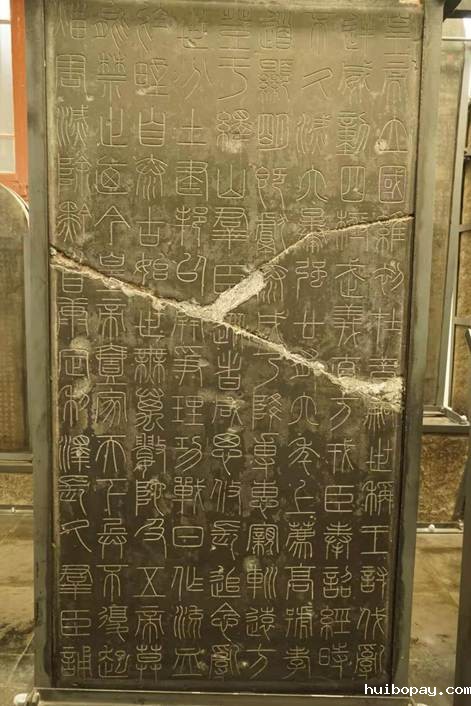 皇帝立國維初在昔嗣世稱王討伐亂
逆威動四極武義直方戎臣奉詔經時
不久滅六暴強廿有六年上薦高號孝
道顯明既獻泰成乃降專惠親巡遠方
登于繹山羣臣從者咸思攸長追念亂
世分土建邦以開爭理功戰日作流血
於野自泰古始世無萬數陀及五帝莫
能禁止迺今皇帝壹家天下兵不復起
災害滅除黔首康定利澤長久羣臣誦
huibopay.com